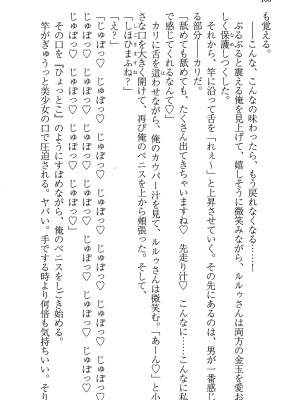 も覚える。
――こんな、こんなの味わったら、もう戻れなくなる……
ぶるぶると震える俺を見上げて、嬉しそうに微笑みながら、ルルゥさんは両方の金玉を愛お
しく保護しつくした。
それから、竿に沿って舌を「れぇ～」と上昇させていく。その先にあるのは、男が一番感じ
る部分――カリだ。
「舐めても、舐めても、たくさん出てきちゃいますね♡　先走り汁♡　こんなに……こんなに私
で感じてくれるなんて♡」
カリに舌を這わせながら、俺のカウパー汁を見て、ルルゥさんは微笑む。「あーん♡」と小
さな口を大きく開けて、再び俺のペニスを上から頬張った。そして、
「しほひまふね？」
「え？」
じゅぽっ♡　じゅぽっ♡　じゅぽっ♡　じゅぽっ♡　じゅぽっ♡
じゅぽっ♡　じゅぽっ♡　じゅぽっ♡　じゅぽっ♡　じゅぽっ♡
その口を『ひょっとこ』のようにすぼめながら、俺のペニスをしごき始める。
竿がぎゅうっと美少女の口で圧迫される。ヤバい。手でする時より何倍も気持ちいい。そり